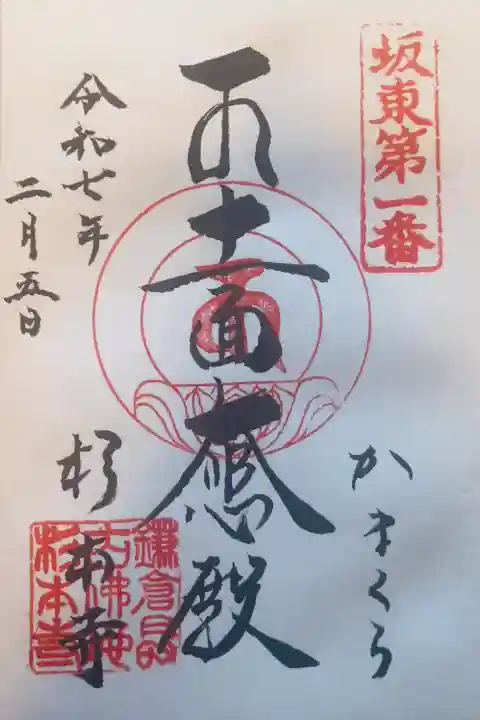 坂東第一番
かまくら
十一面大悲殿
令和七年
二月五日
杉本寺
鎌倉最
古佛地
杉本寺